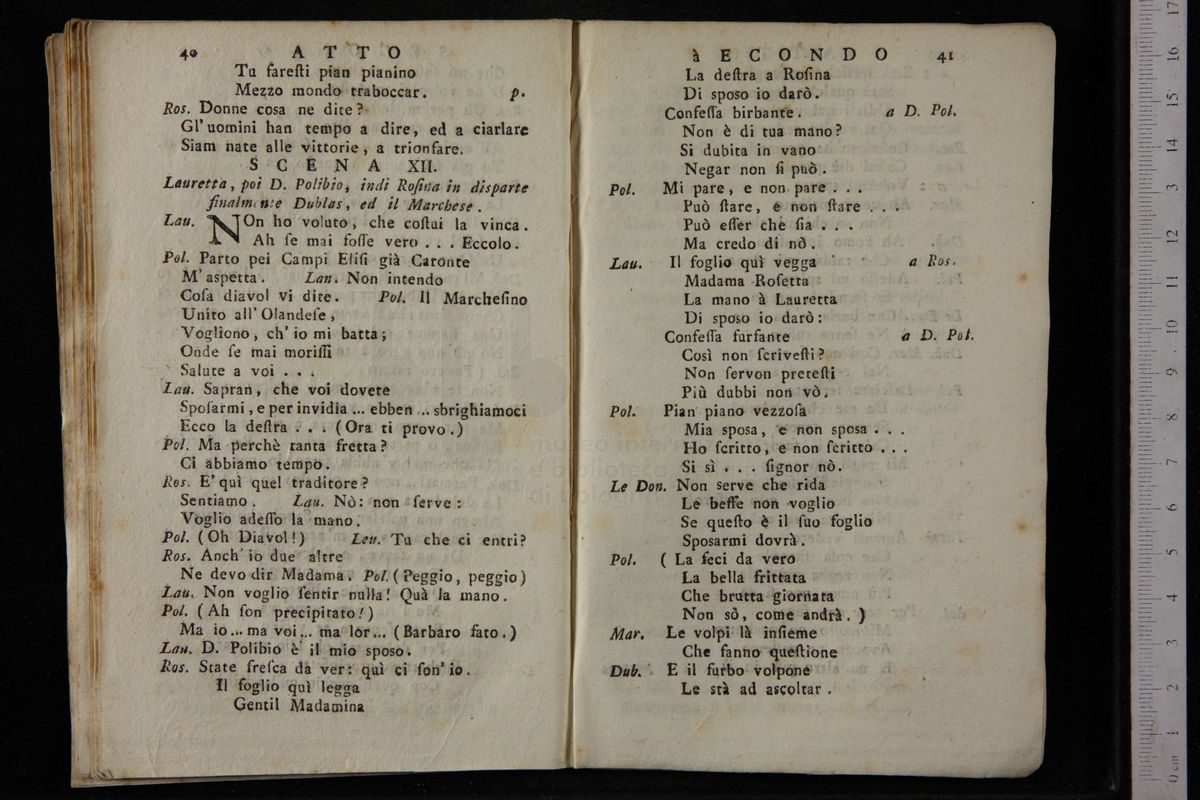 40 A T T O
Tu fareſti pian pianino
Mezzo mondo traboccar. p.
Ros. Donne cosa ne dite?
Gl'uomini han tempo a dire, ed a ciarlare
Siam nate alle vittorie, a trionfare.
S C E N A XII.
Lauretta, poi D. Polibio, indi Roſina in disparte
finalmente Dublas, ed il Marchese.
Lau. NOn ho voluto, che coſtui la vinca.
Ah ſe mai foſſe vero . . . Eccolo.
Pol. Parto pei Campi Eliſi già Caronte
M'aspetta. Lau. Non intendo
Coſa diavol vi dite. Pol. Il Marcheſino
Unito all'Olandeſe,
Vogliono, ch'io mi batta;
Onde ſe mai moriſſi
Salute a voi . . .
Lau. Sapran, che voi dovete
Spoſarmi, e per invidia ... ebben ... sbrighiamoci
Ecco la deſtra . . . (Ora ti provo.)
Pol. Ma perchè tanta fretta?
Ci abbiamo tempo.
Ros. E' quì quel traditore?
Sentiamo. Lau. Nò: non ſerve:
Voglio adeſſo la mano.
Pol. (Oh Diavol!) Lau. Tu che ci entri?
Ros. Anch'io due altre
Ne devo dir Madama. Pol. (Peggio, peggio)
Lau. Non voglio ſentir nulla! Quà la mano.
Pol. (Ah ſon precipitato!)
Ma io... ma voi... ma lor... (Barbaro fato.)
Lau. D. Polibio è il mio sposo.
Ros. State freſca da ver: quì ci ſon'io.
Il foglio quì legga
Gentil Madamina
à E C O N D O 41
La deſtra a Roſina
Di sposo io darò.
Confeſſa birbante. a D. Pol.
Non è di tua mano?
Si dubita in vano
Negar non ſi può.
Pol. Mi pare, e non pare . . .
Può ſtare, e non ſtare . . .
Può eſſer chè ſia . . .
Ma credo di nò.
Lau. Il foglio quì vegga a Ros.
Madama Roſetta
La mano à Lauretta
Di sposo io darò:
Confeſſa furfante a D. Pol.
Così non ſcriveſti?
Non ſervon preteſti
Più dubbi non vò.
Pol. Pian piano vezzoſa
Mia sposa, e non sposa . . .
Ho ſcritto, e non ſcritto . . .
Si sì . . . ſignor nò.
Le Don. Non serve che rida
Le beffe non voglio
Se queſto è il ſuo foglio
Sposarmi dovrà.
Pol. ( La feci da vero
La bella frittata
Che brutta giornata
Non sò, come andrà. )
Mar. Le volpi là inſieme
Che fanno queſtione
Dub. E il furbo volpone
Le stà ad ascoltar.